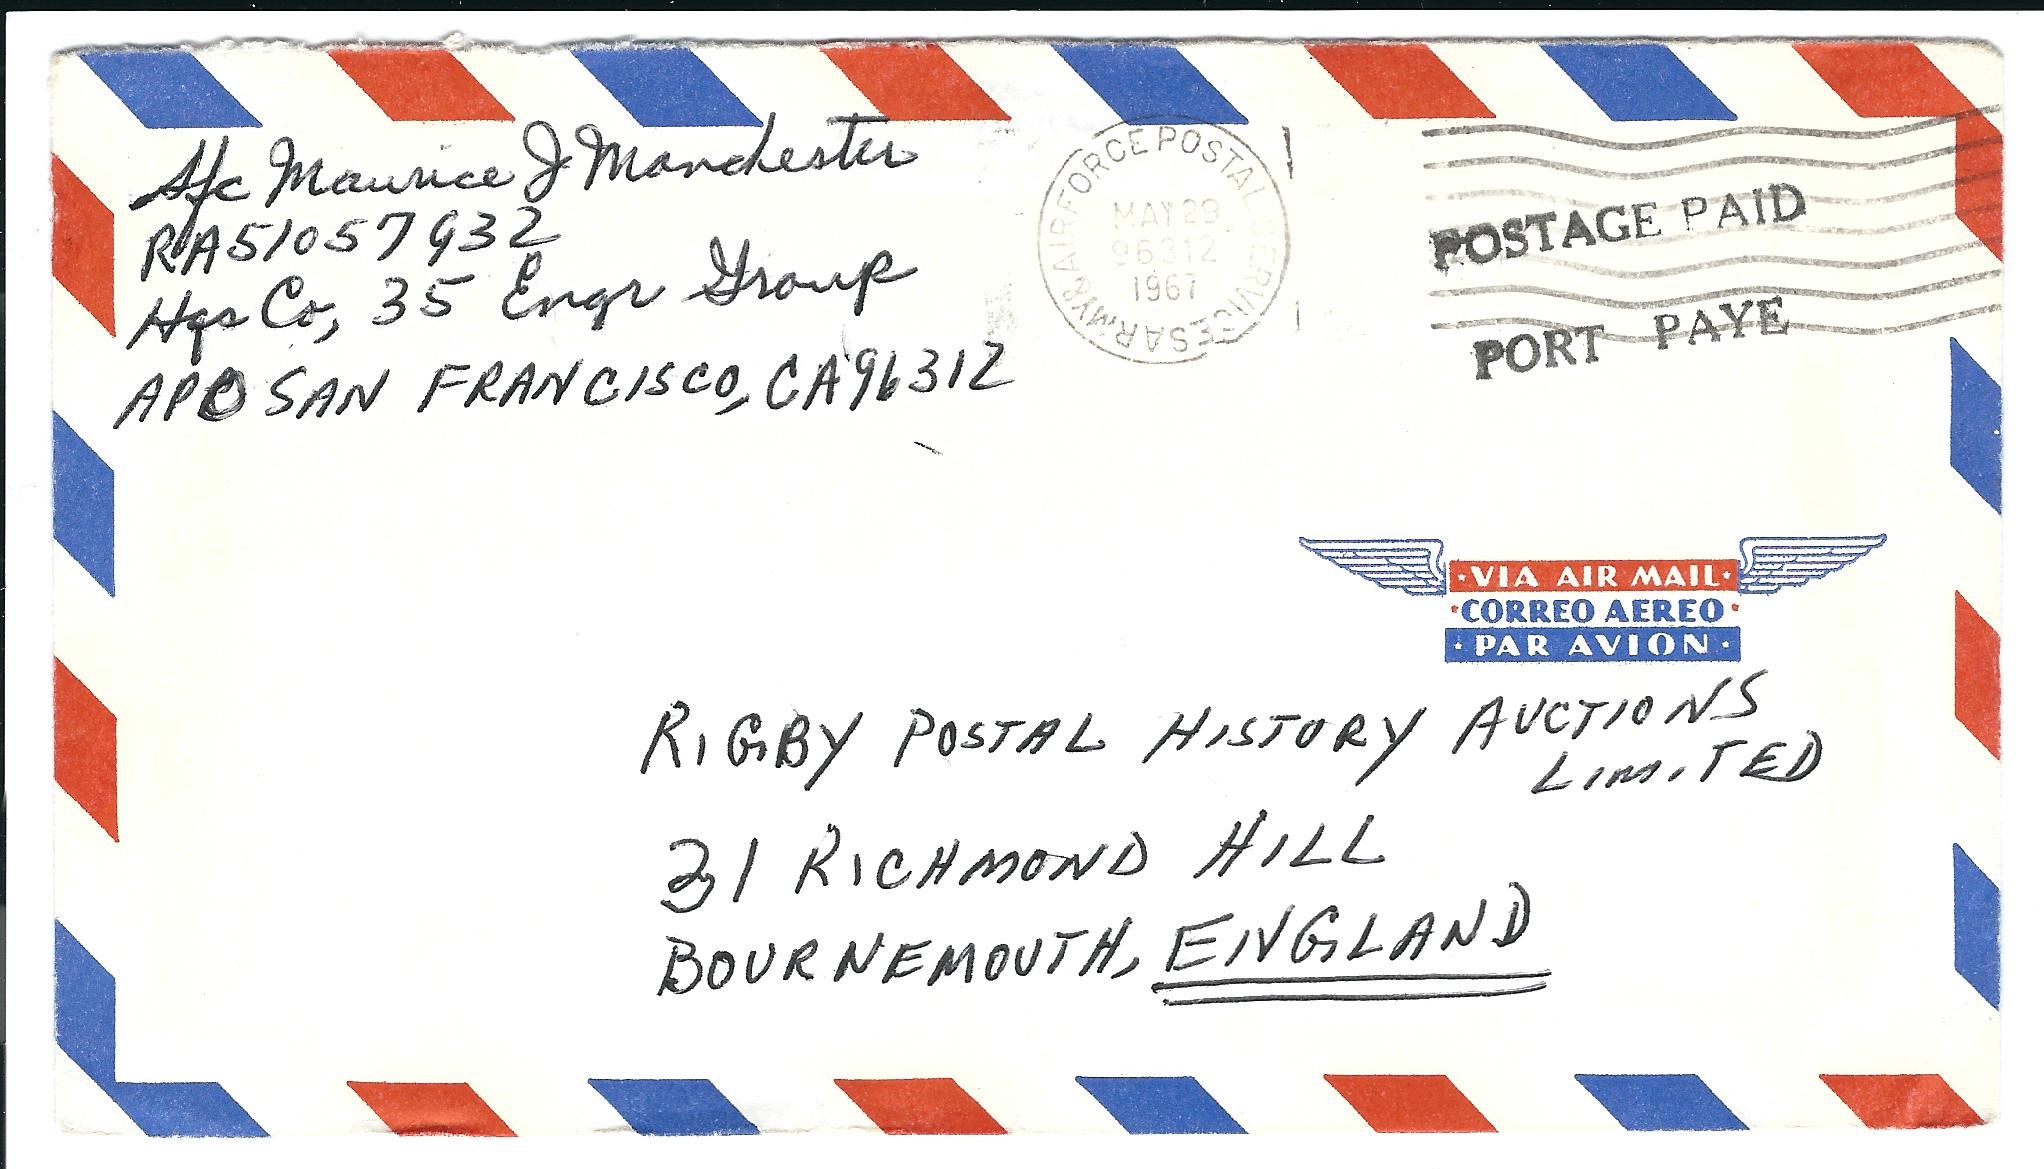 Sfc Maurice J Manchester
RA51057932
Hqs Co, 35 Engr Group
APO SAN FRANCISCO, CA 96312
ARMY & AIR FORCE POSTAL SERVICE
MAY 29
96312
1967
POSTAGE PAID
PORT PAYE
VIA AIR MAIL
CORREO AEREO
PAR AVION
RIGBY POSTAL HISTORY AUCTIONS
LIMITED
31 RICHMOND HILL
BOURNEMOUTH, ENGLAND